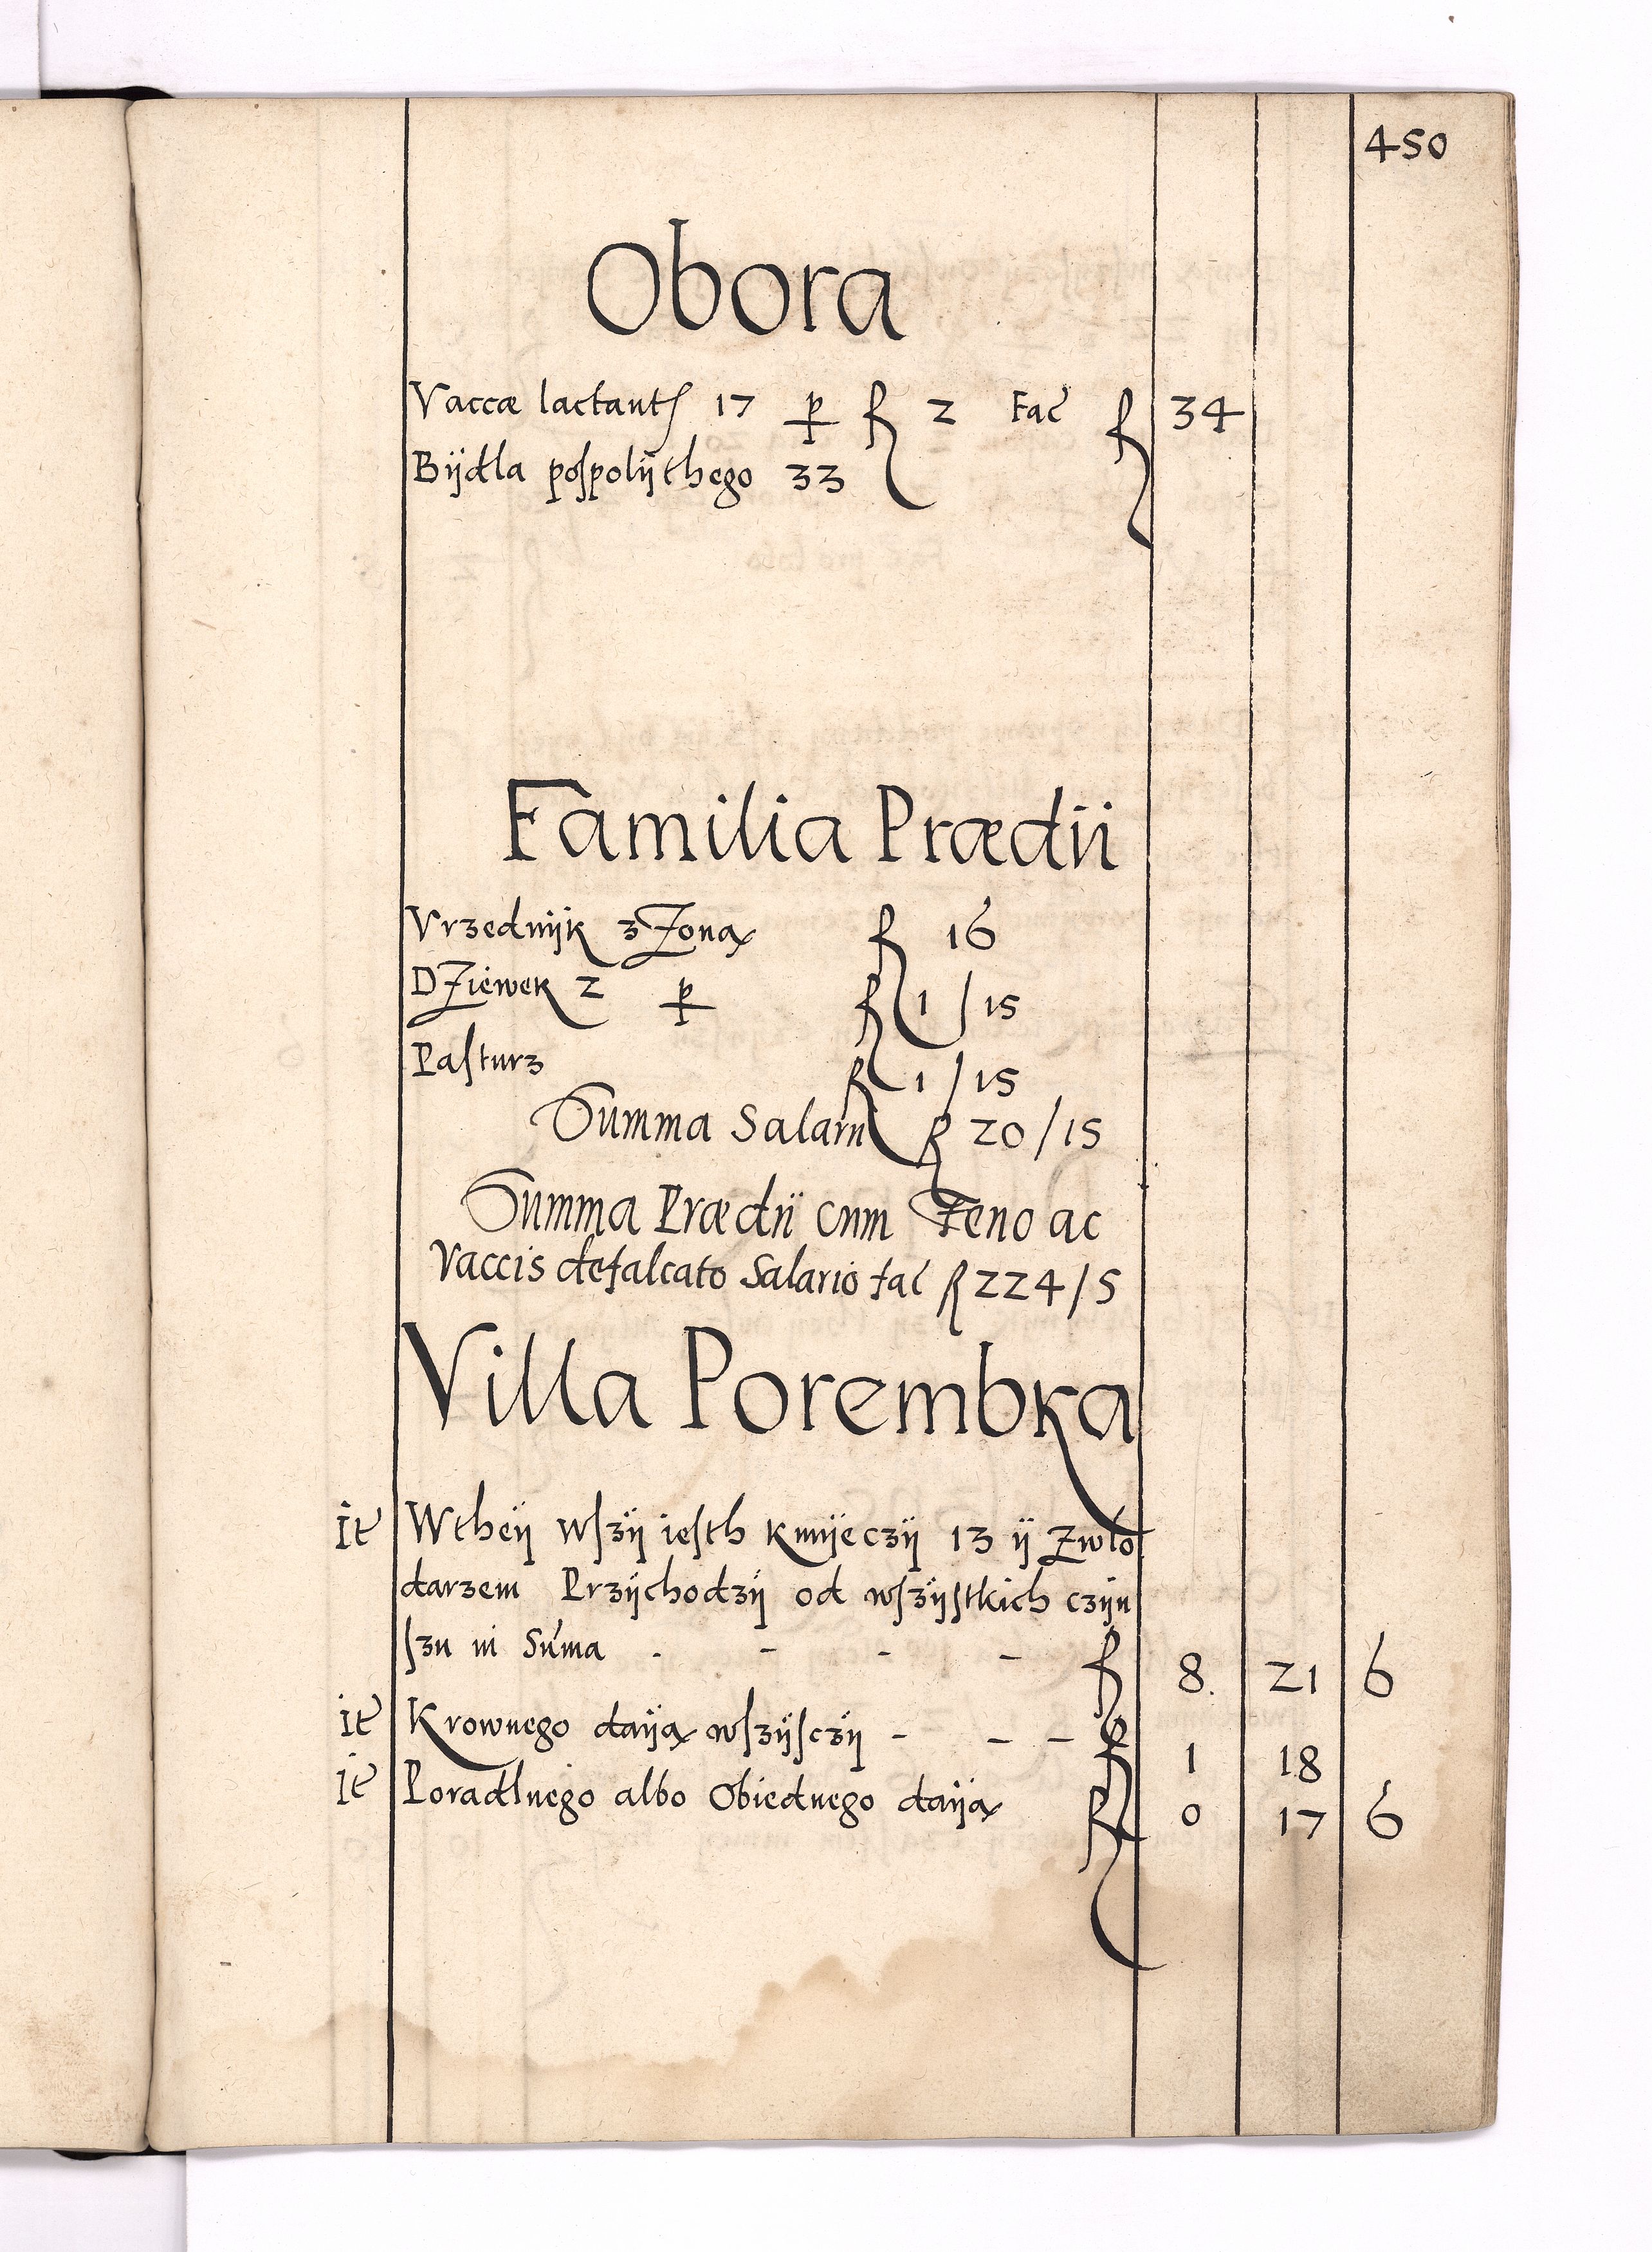 450
Obora
Vaccæ lactantſ 17 ꝑ ƒ 2 Fac̃ ƒ 34
Bÿdla poſpolÿthego 33
Familia Prædii
Vrzednÿk z Zonax ƒ 16
DZiewek 2 ꝑ ƒ 1 / 15
Paſturz ƒ 1 / 15
Summa Salarii ƒ 20 / 15
Summa Prædii cum Feno ac
Vaccis defalcato Salario fac̃ ƒ 224 / 5
Villa Porembka
it̃ Wtheÿ wſzÿ ieſth kmÿeczÿ 13 ÿ Zwło
darzem Przÿchodzÿ od wſzÿſtkich czÿn
ſzu in Sum̃a - - - - ƒ 8. 21 6
it̃ Krownego daÿax wſzÿſczÿ - - - ƒ 1 18
it̃ Poradlnego albo Obiednego daÿax ƒ 0 17 6